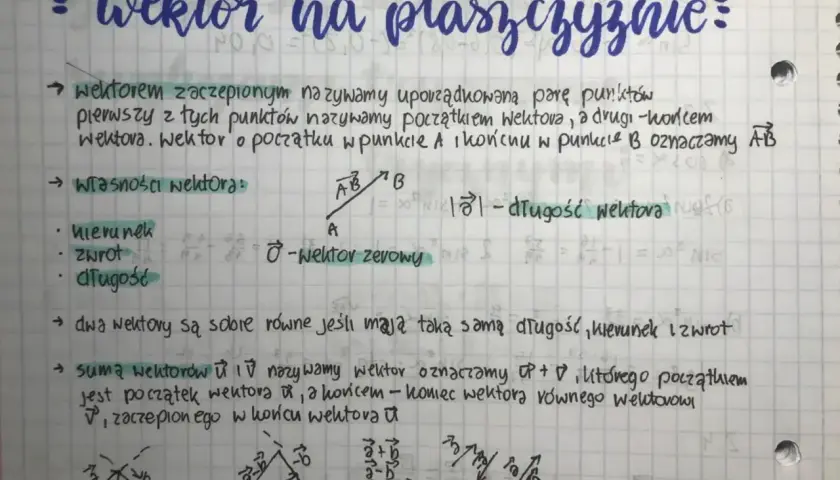 = wektor na płaszczyźnie =
→ wektorem zaczepionym nazywamy uporządkowaną parę punktów
pierwszy z tych punktów nazywamy początkiem wektora, a drugi - końcem
wektora. wektor o początku w punkcie A i końcu w punkcie B oznaczamy A⃗B⃗
→ własności wektora:
A⃗B⃗ B
A
|a⃗| - długość wektora
· kierunek
· zwrot
· długość
0⃗ - wektor zerowy
→ dwa wektory są sobie równe jeśli mają taką samą długość, kierunek i zwrot
→ sumą wektorów u⃗ i v⃗ nazywamy wektor oznaczamy u⃗ + v⃗, którego początkiem
jest początek wektora u⃗, a końcem - koniec wektora równego wektorowi
v⃗, zaczepionego w końcu wektora u⃗
a⃗+b⃗
a⃗-b⃗